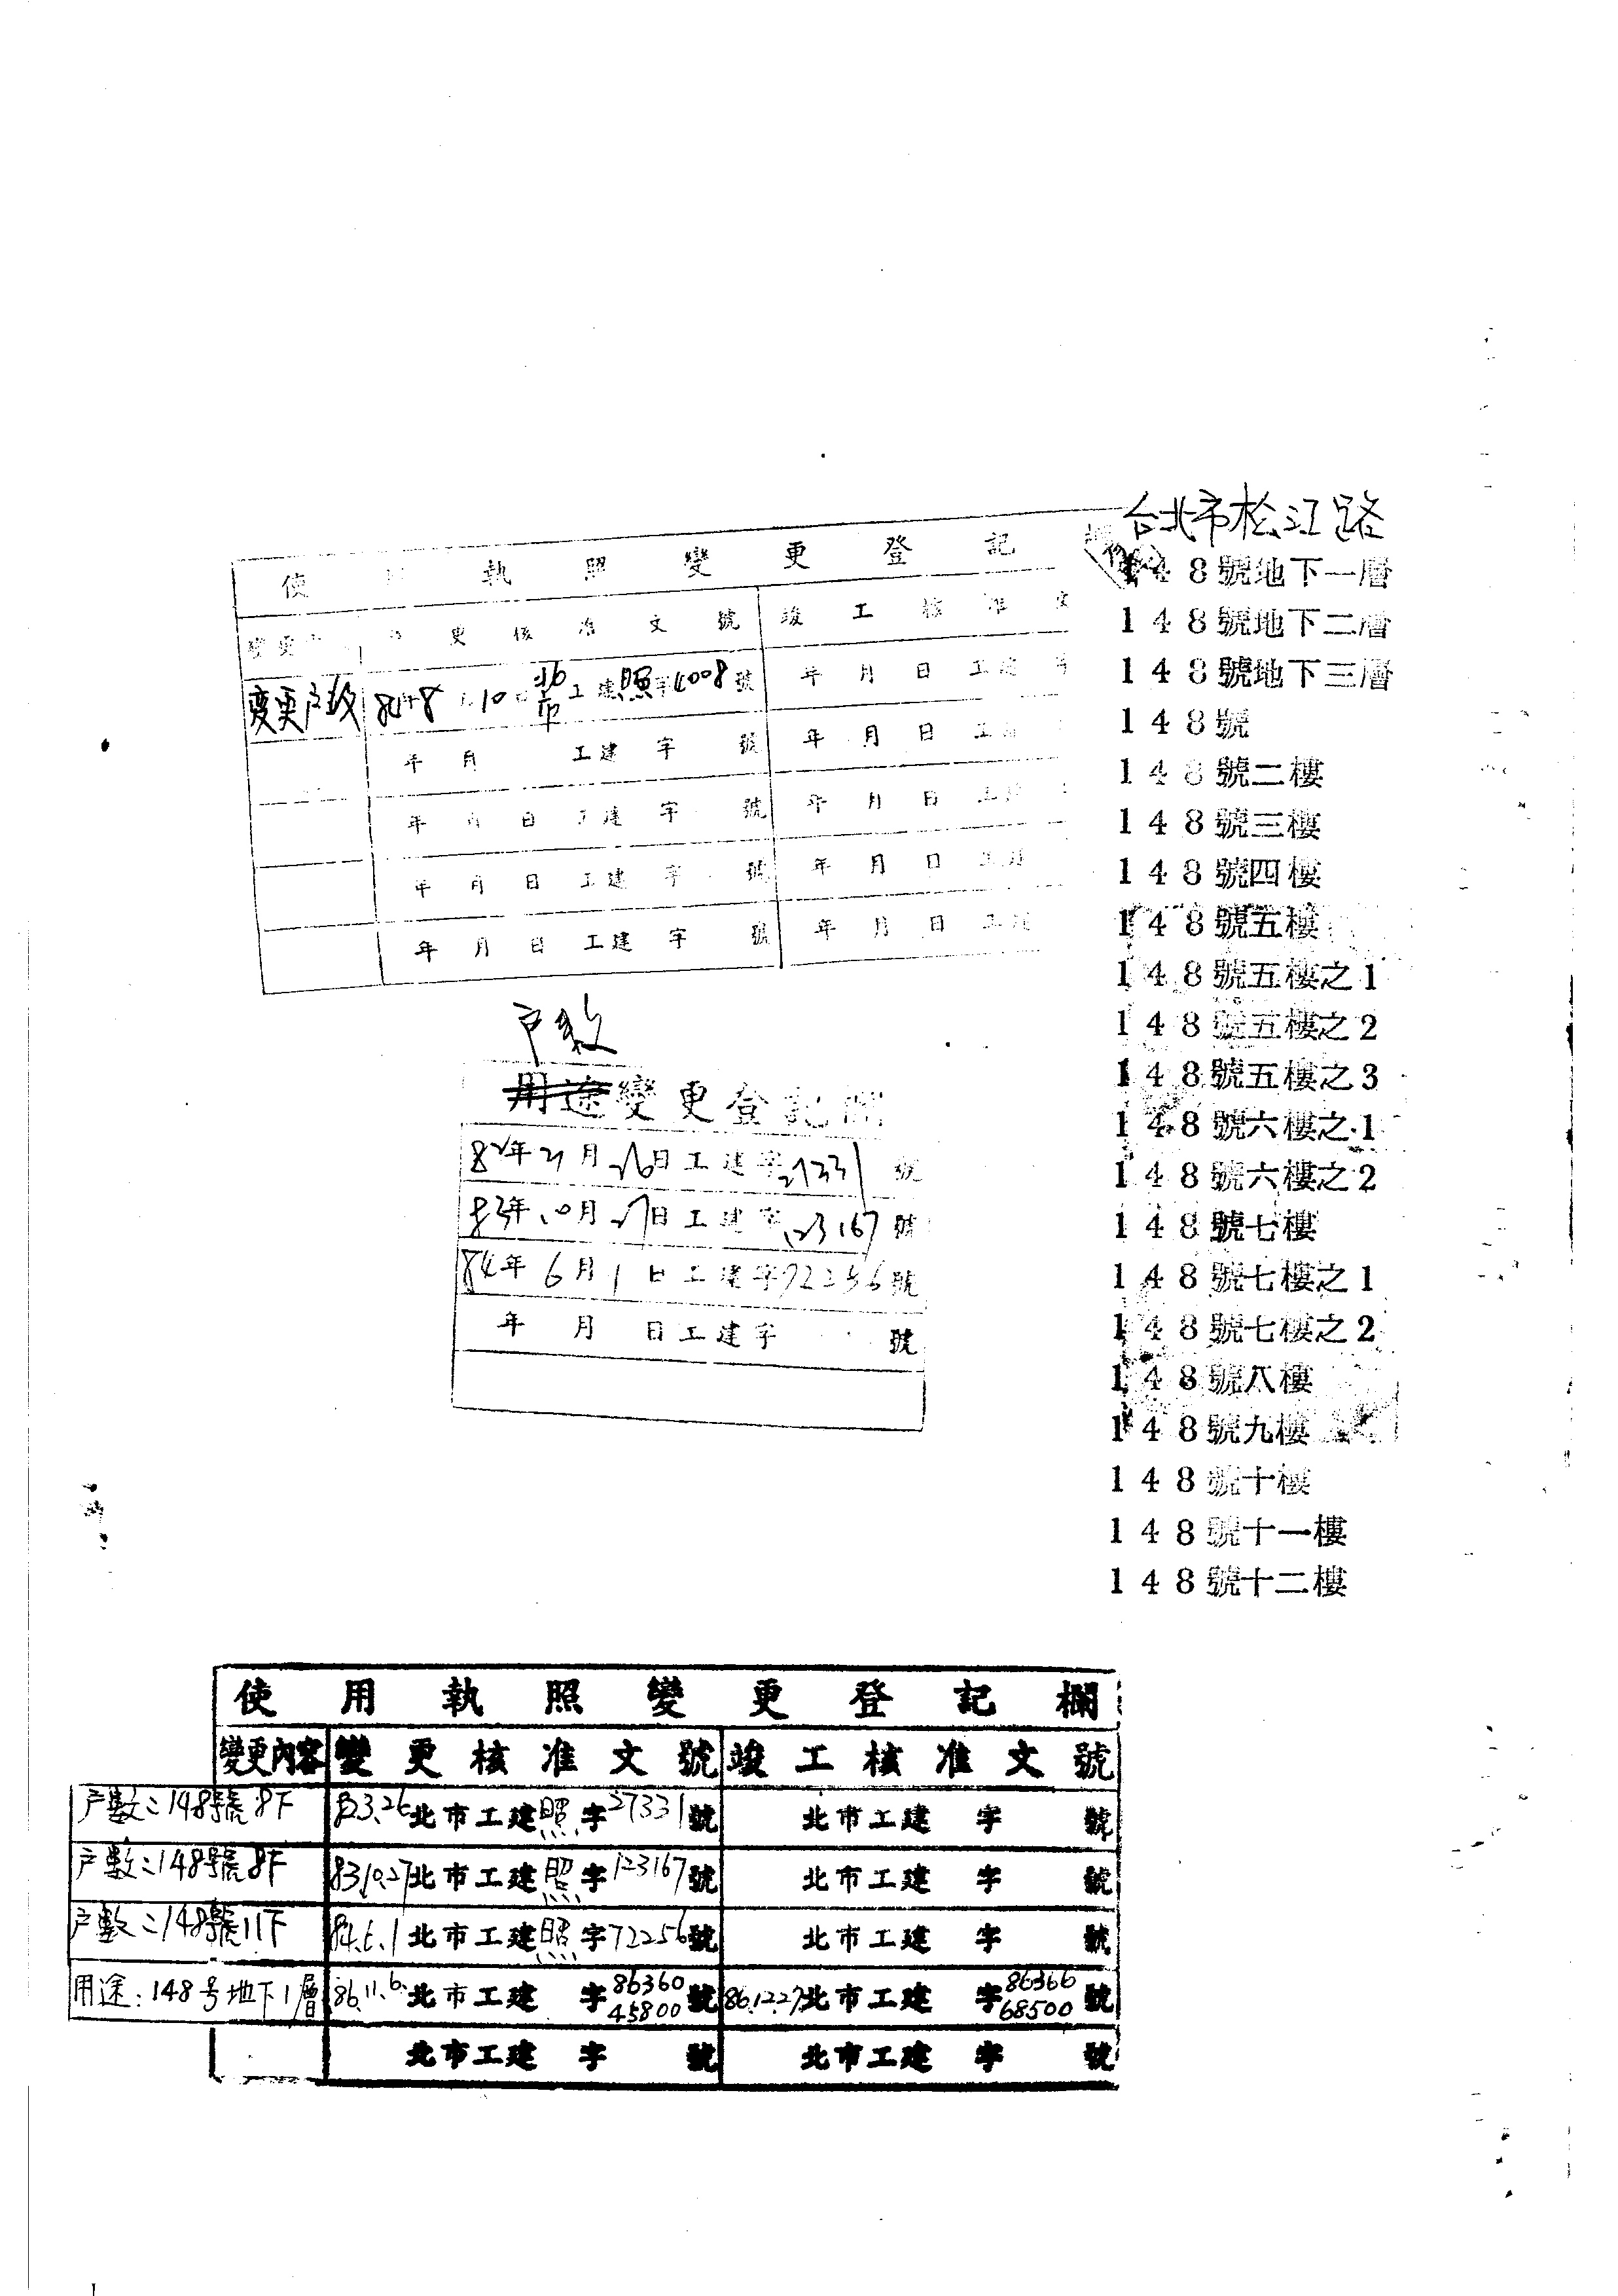 台北市松江路
148號地下一層
148號地下二層
148號地下三層
148號
148號二樓
148號三樓
148號四樓
148號五樓
148號五樓之1
148號五樓之2
148號五樓之3
148號六樓之1
148號六樓之2
148號七樓
148號七樓之1
148號七樓之2
148號八樓
148號九樓
148號十樓
148號十一樓
148號十二樓
使 執 照 變 更 登 記
變更 更 核 准 文 號 竣 工 核 准 文
變更戶数 10 北市工建照字4008號 年 月 日 工建
年 月 工建 字 號 年 月 日 工
年 月 日 工建 字 號 年 月 日 工
年 月 日 工建 字 號 年 月 日 工
年 月 日 工建 字 號 年 月 日 工建
戶數
用途變更登記欄
82年 月26日工建字27331號
83年10月27日工建字123167號
84年6月1日工建字72256號
年 月 日工建字 號
使用執照變更登記欄
變更內容 變更核准文號 竣工核准文號
戶數:148號8F 82.3.26北市工建照字27331號 北市工建 字 號
戶數:148號8F 83.10.27北市工建照字123167號 北市工建 字 號
戶數:148號11F 84.6.1北市工建照字72256號 北市工建 字 號
用途:148号地下1層 86.11.6.北市工建 字8636045800號 86.12.27北市工建 字8636668500號
北市工建 字 號 北市工建 字 號